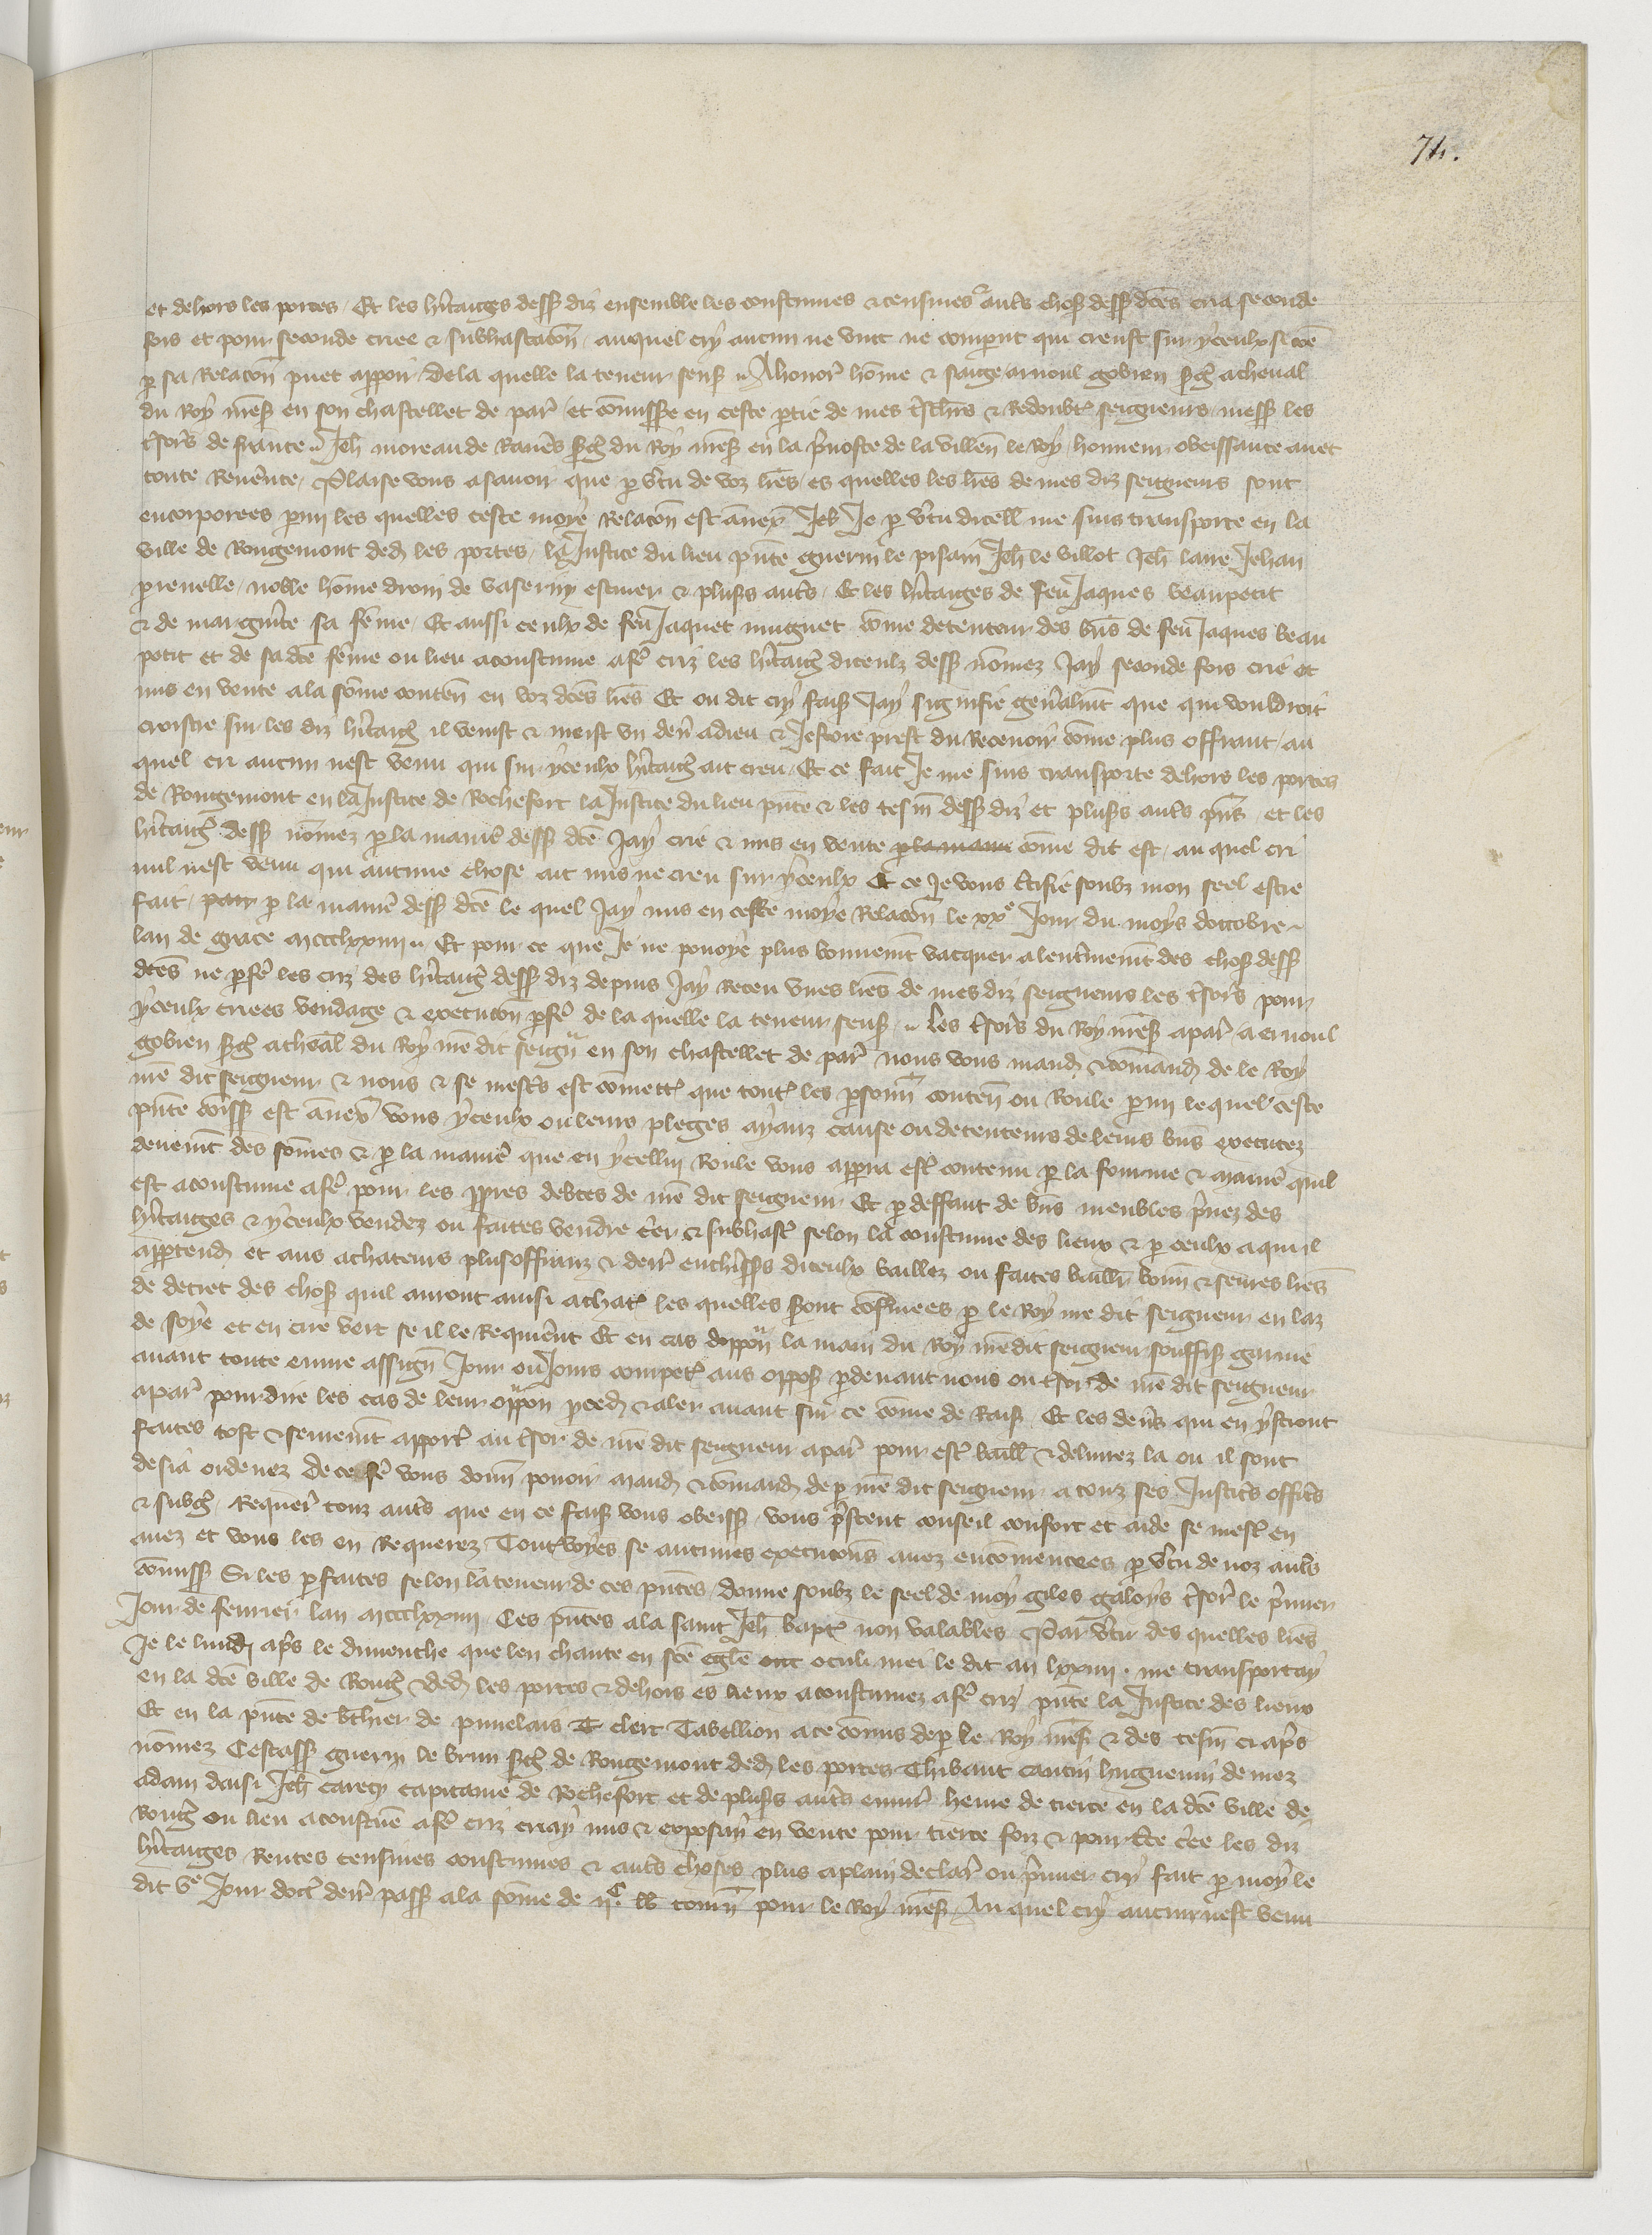 74.
et dehors les portes. Et les hͥtaiges dess' diz ensemble les coustumes & censiues & aut̃s chos' dess' dc̃es cria seconde
fois et pour seconde criee & subhastac̃on auquel cry aucun ne vint ne comparut qui creust sur yceulx si cõe
p sa Relac̃on puet apparoir dela quelle la teneur sensuit. A honor' hõme & saige arnoul gobien s'g' acheual
du Roy nr̃es' en son chastellet de par' et cõmiss'e en ceste ptie de mes t'schiers & Redoubt' seigneurs mess' les
t'sors de france. Jeh' moreau de Rauer's s'g' du Roy nr̃es' en la p'uoste de la villen' le Roy honneur obeissance auec
toute Reuer'nce. Plaise vous asauoir que p v'tu de voz l'res es quelles les l'res de mes diz seigneurs sont
encorporees pmi les quelles ceste moye Relac̃on est annex' Je p v'tu dicell' me suis transporte en la
ville de Rougemont ded' les portes, la Justice du lieu p'nte guerin le pisain Jeh' le villot Jeh' laue Jehan
prenelle, noble hõme droin de vaserny escuier & plus's aut's. Et les h'itaiges de feu Jaques beaupetit
& de marguer'te sa fẽme. Et aussi ceulx de feu Jaquet muguet cõme detenteur des b'ns de feu Jaques beau
petit et de sa dc̃e fẽme ou lieu acoustume afe' criz les h'itaig' diceulz dess' nõmez Jay seconde fois crie et
mis en vente ala sõme conten' en voz dc̃es l'res Et ou dit cry fais' Jay signifie gen'alm't que qui vouldroit
croistre sur les diz h'itaig' il venist & meist un den' adieu & Jestoie prest du Receuoir cõme plus offrant, au
quel cri aucun nest venu qui sur yceulx h'itaig' ait creu. Et ce fait Je me suis transporte dehors les portes
de Rougemont en la Justice de Rochefort la Justice du lieu p'nte & les tesm' dess' diz et plus's aut's p'ns, et les
h'itaig' dess' nõmez p la manie' dess' dc̃e Jay crie & mis en vente p la manie cõme dit est, au quel cri
nul nest venu qui aucune chose ait mis ne creu sur yceulx Et ce Je vous c'tifie soubz mon seel estre
fait, par p la manie' dess' dc̃e le quel Jay mis en ceste moye Relac̃on le xxe Jour du moys doctobre
lan de grace mccclxxiiii. Et pour ce que Je ne pouoye plus bonnem't vacquer a lent'inem't des chos' dess'
dc̃es ne pfe' les criz des h'itaig' dess' diz depuis Jay Receu unes l'res de mes diz seigneurs les t'sor's pour
yceulx criees vendage & execuc̃on pfe' de la quelle la teneur sens'. Les t'sor's du Roy nr̃es' apar' a ernoul
gobien s'g' acheual du Roy nr̃e dit seign' en son chastellet de par' nous vous mand' & cõmand' de le Roy
nr̃e dit seigneur & nous & se mest's est cõmett' que tout' les pson' conten' ou Roule pmi lequel ceste
p'nte cõiss' est annex' vous yceulx ou leurs pleges ayanz cause ou detenteurs de leurs b'ns executez
deuem't des sõmes & p la manie' que en ycellui Roule vous apparra est' contenu p la fourme & manie' quil
est acoustume afe' pour les ppres debtes de nr̃e dit seigneur. Et p deffaut de b'ns meubles p'nez des
h'itaiges & yceulx vendez ou faites vendre crier & subhast' selon la coustume des lieux & p ceulx aquil
appartend' et aus achateurs plusoffranz & derr' encher'ss's diceulx baillez ou faites baillr' bonn' & seures l'res
de decret des chos' quil auront ainsi achat' les quelles s'ont conf'mees p le Roy nr̃e dit seigneur en laz
de soye et en cire vert se il le Requier'nt Et en cas dopp̃on la main du Roy nr̃e dit seigneur souffis' garnie
auant toute euure assign' Jour ou Jours compet' aus oppos' pdeuant nous ou t'sor de nr̃e dit seigneur
apar' pour dire les cas de leur opp̃on pced' & aler auant sur ce cõme de Rais'. Et les den's qui en ystront
faites tost & seurem't apport' au t'sor de nr̃e dit seigneur apar' pour est' baill' & deliurez la ou il sont
desia ordenez de ce fe' vous donn' pouoir mand' & cõmand' de p nr̃e dit seigneur a touz ses Justic's offic's
& subg'. Requer' touz aut's que en ce fais' vous obeiss', vous p'stent conseil confort et aide se mest' en
auez et vous les en Requerez Toutesvoyes se aucunes execuc̃ons auez encõmencees p v'tu de noz aut's
cõmiss' Si les pfaites selon la teneur de ces p'ntes, donne soubz le seel de moy giles galoys t'sor' le p'mier
Jour de feurier lan mccclxxiiii. Ces p'ntes ala saint Jeh' bapt' non valables. Par v'tu des quelles l'res
Je le lundi ap's le dimenche que len chante en sc̃e egl'e oct oculi mei le dit an lxxiiii. me transportay
en la dc̃e ville de Roug' & ded' les portes & dehors es lieux acoustumez afe' criz p'nte la Justice des lieux
Et en la p'nte de b'thier de prunelais clerc Tabellion a ce cõmis de p le Roy nr̃es' & des tesm' ci ap's
nõmez Cestass' guerin le brun s'g' de Rougemont ded' les portes Thibaut cautin huguenin de mez
adam daisi Jeh' carecy capitaine de Rochefort et de plus's aut's enuir' heure de tierce en la dc̃e ville de
Roug' ou lieu acoustume afe' criz criay mis & exposay en vente pour tierce foiz & pour t'ce c'ee les diz
h'itaiges Rentes censiues coustumes & aut's choses plus aplain declar' ou p'mier cry fait p moy le
dit ve Jour doct' derr' pass' ala sõme de iic lb tourn' pour le Roy nr̃es'. Au quel cry aucun nest venu